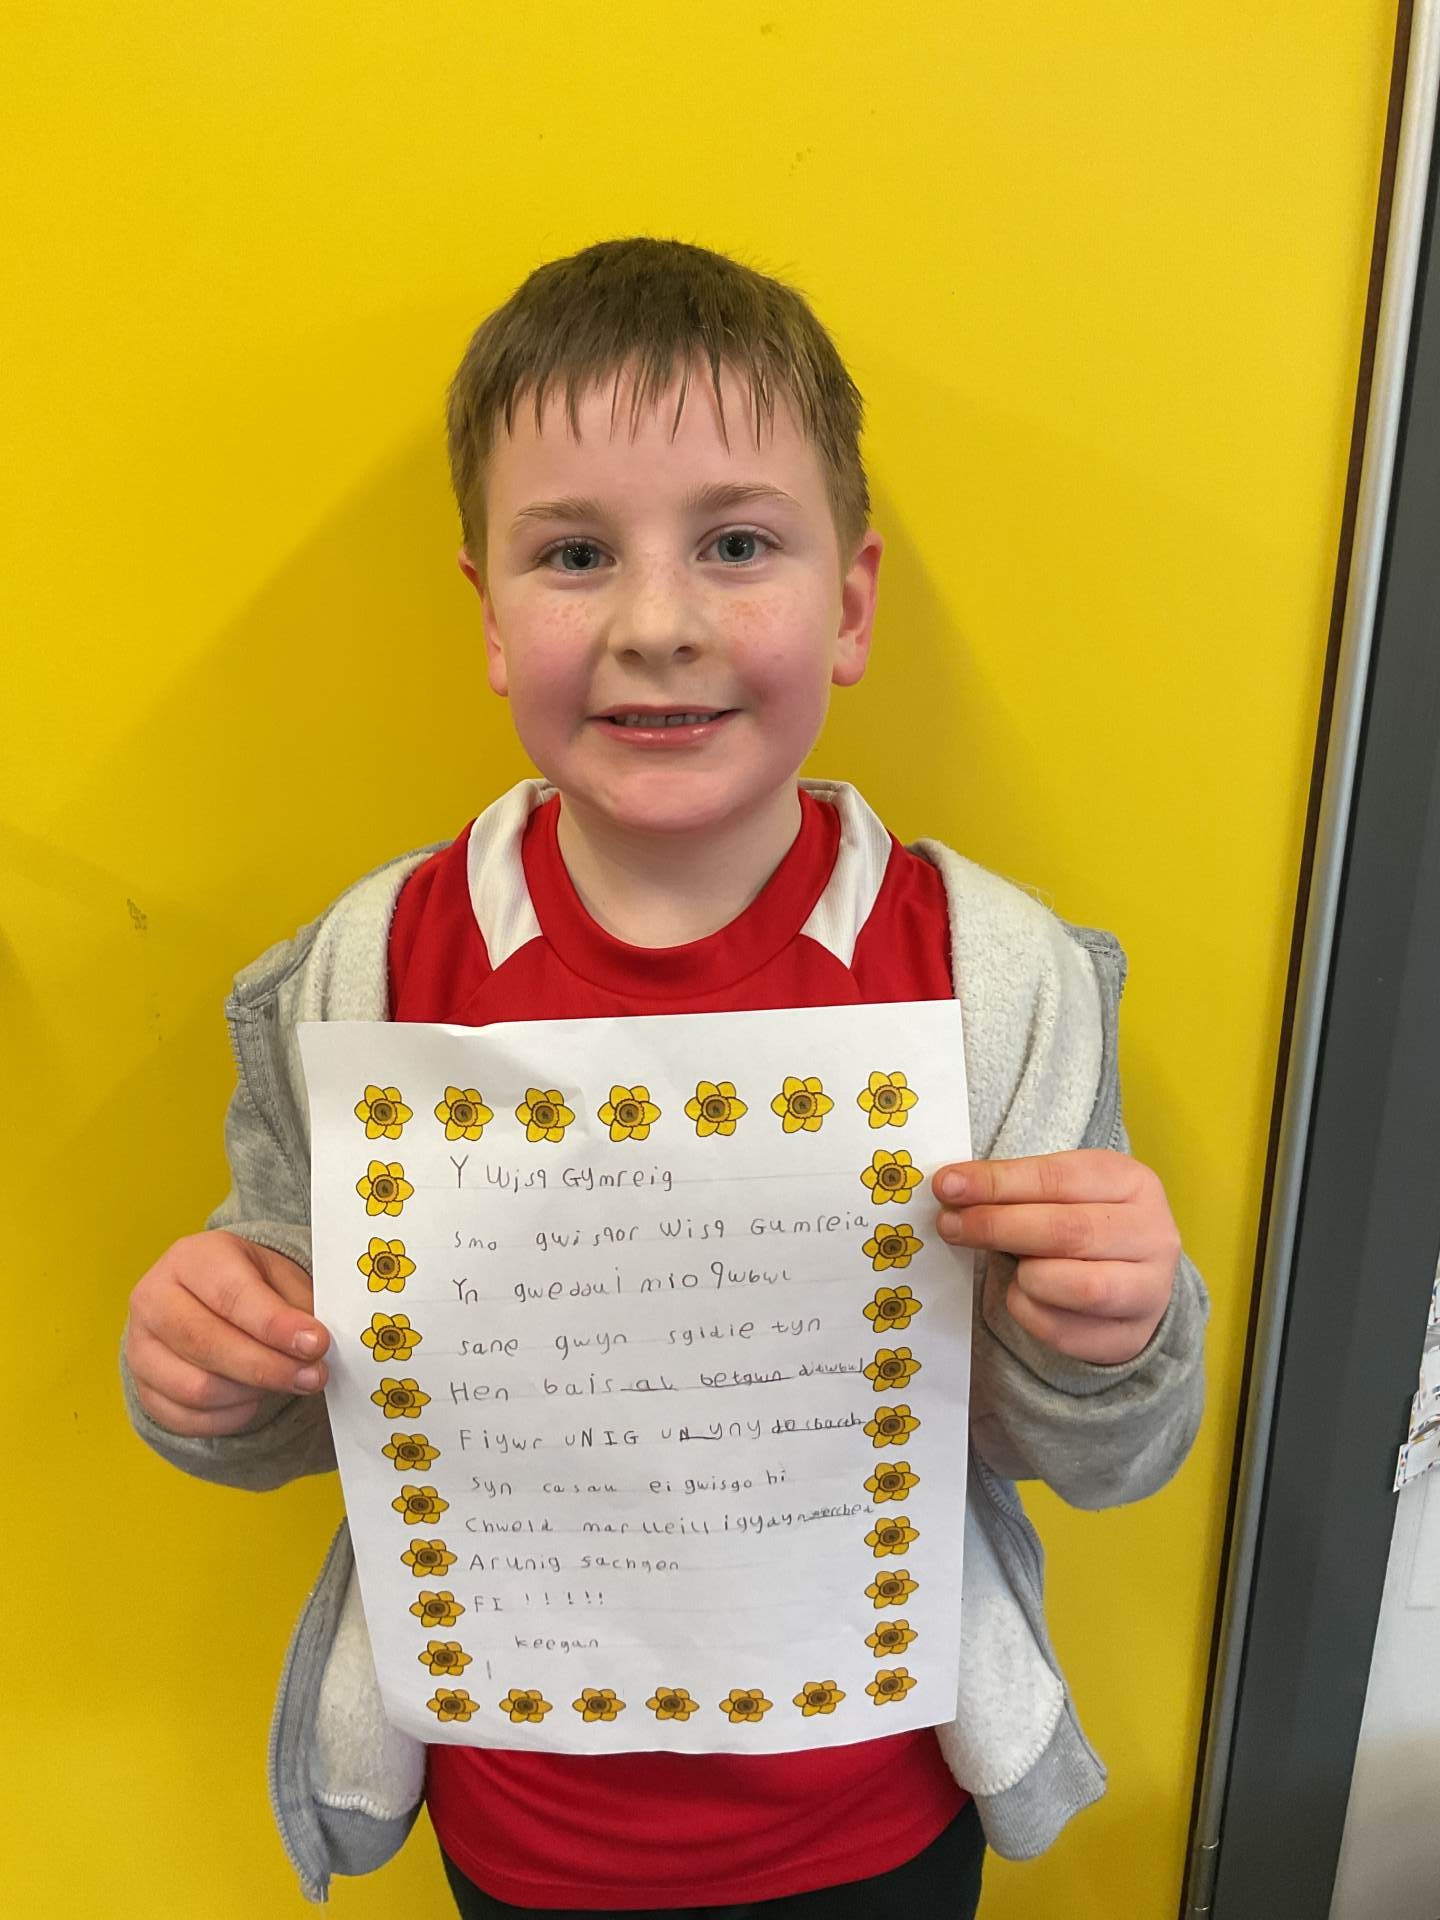 Y Wisg Gymreig
Smo gwisgor Wisg Gumreia
Yn gweddui mio gwbwl
sane gwyn sgidie tyn
Hen bais al betgwn
Fiywr UNIG UN yny
syn casau ei gwisgo hi
Chweld mar lleill i gyd yn
Ar unig sachgen
FI !!!!!
keegan